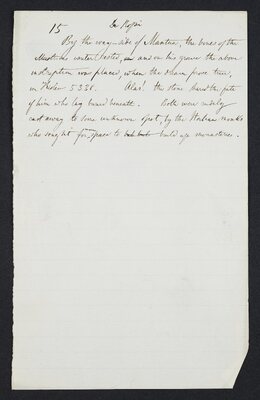 15
De Rossi
By the way-side of Mantua, the bones of the
Mantuan writer rested, and on his grave the above
inscription was placed, when the dream prove true,
in Thesri 5338. Alas! the stone shared the fate
of him who lay buried beneath. Both were rudely
cast away to some unknown spot, by the Italian monks
who sought for space to build up monasteries.